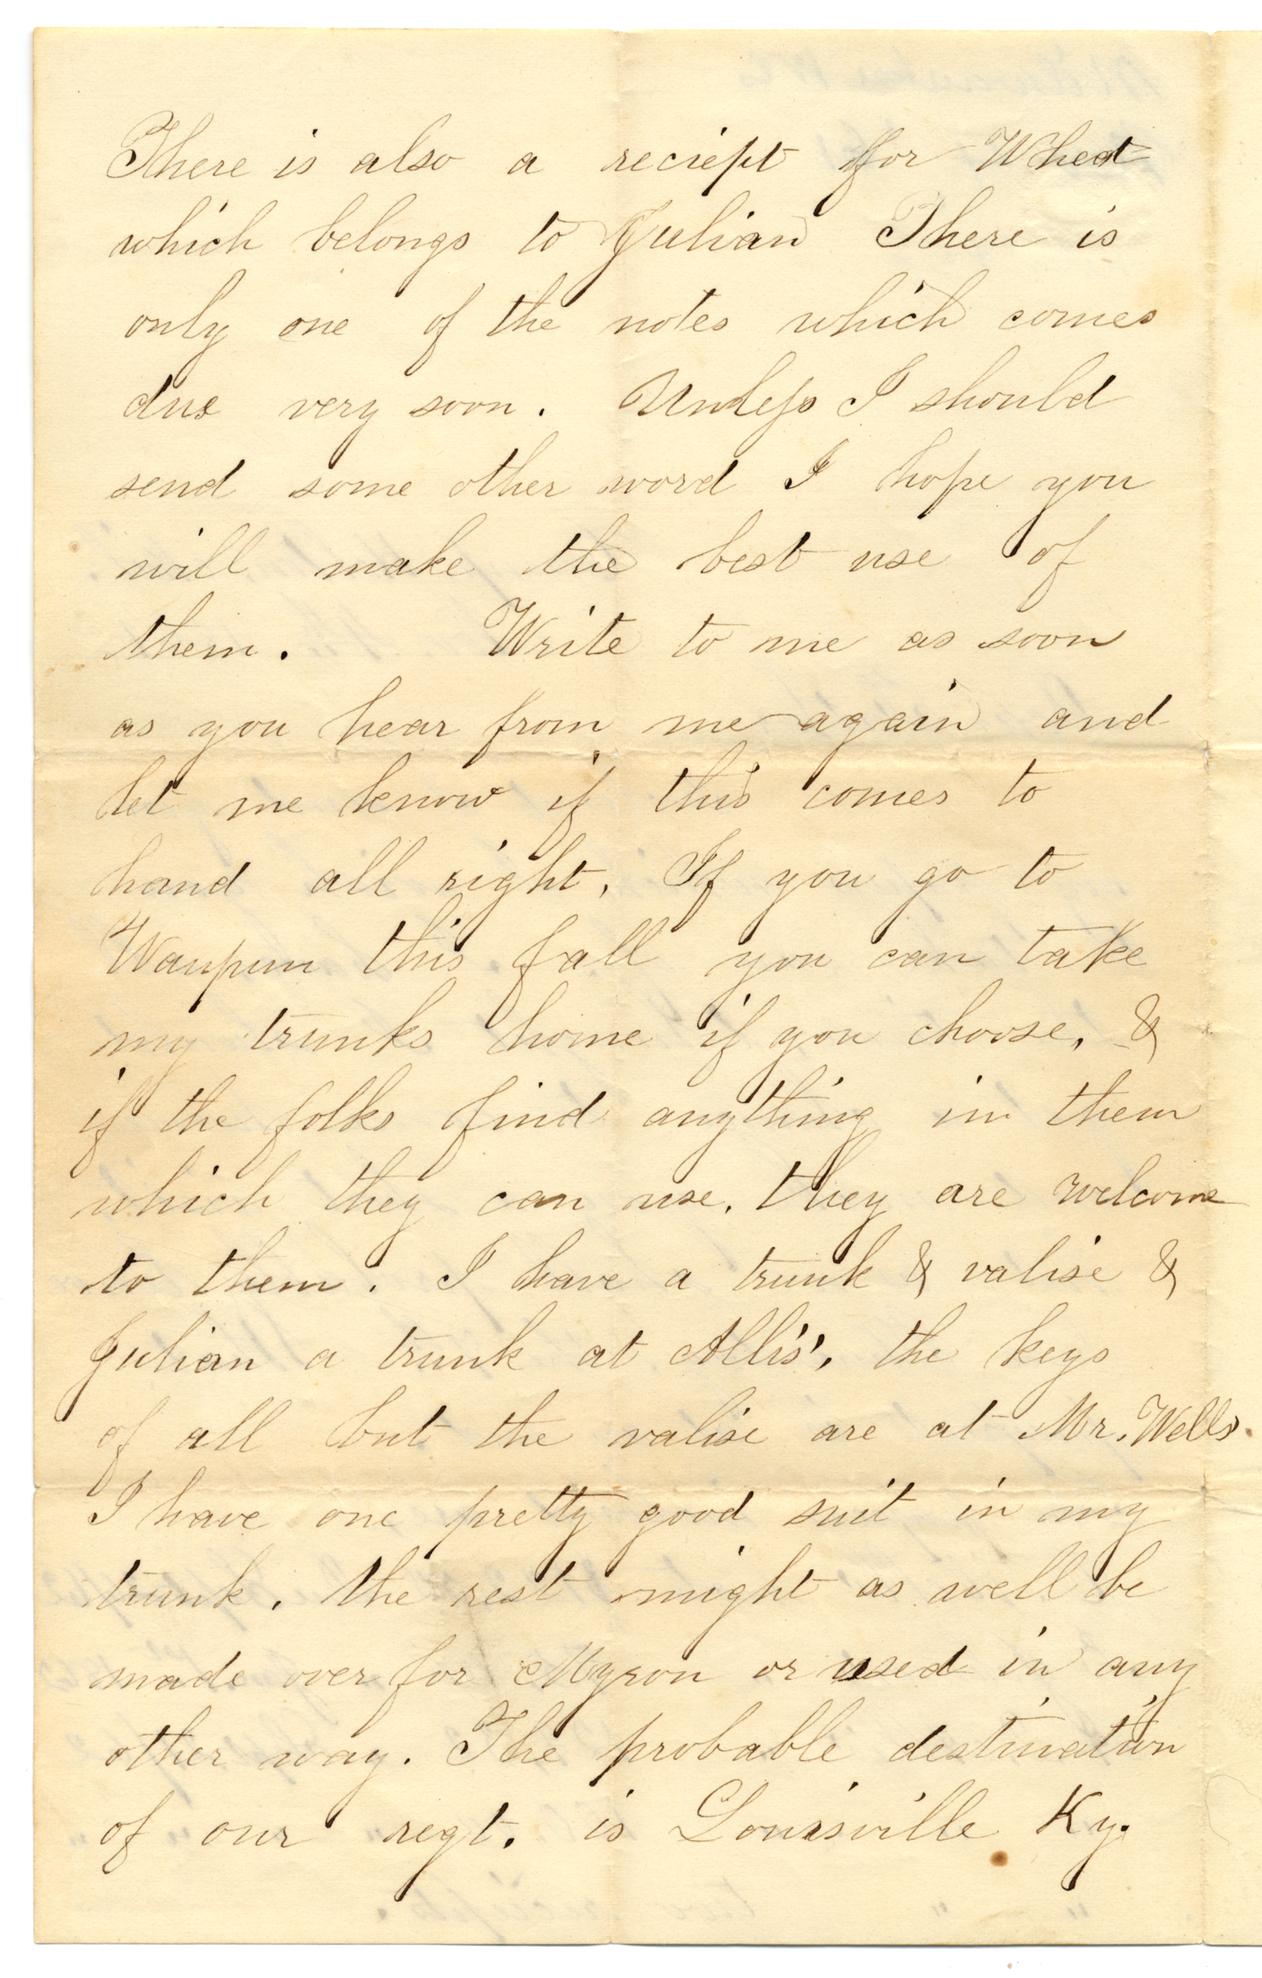 There is also a reciept for Wheat
which belongs to Julian There is
only one of the notes which comes
due very soon. Unless I should
send some other word I hope you
will make the best use of
them. Write to me as soon
as you hear from me again and
let me know if this comes to
hand all right. If you go to
Waupun this fall you can take
my trunks home if you choose, &
if the folks find anything in them
which they can use, they are welcome
to them. I have a trunk & valise &
Julian a trunk at Allis', the keys
of all but the valise are at Mr. Wells.
I have one pretty good suit in my
trunk, the rest might as well be
made over for Myron or used in any
other way. The probable destination
of our regt. is Louisville Ky.